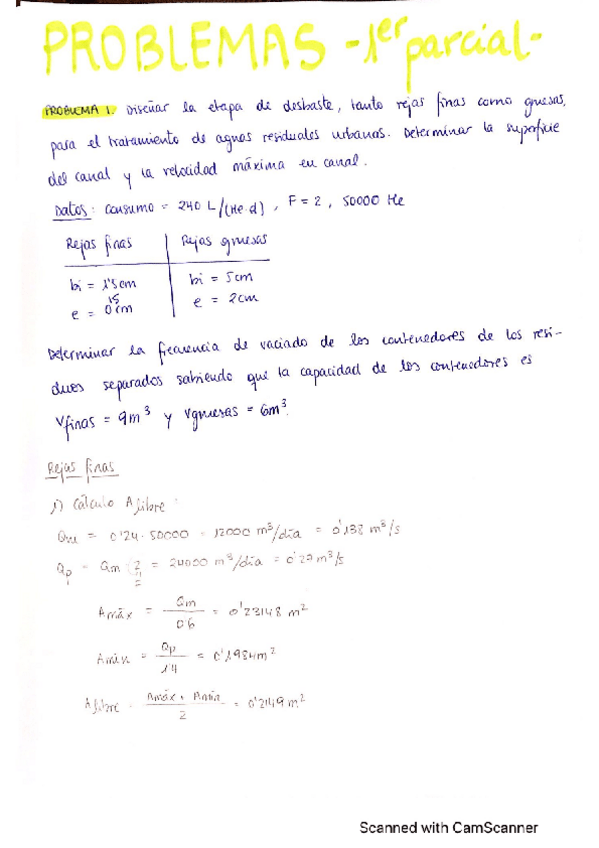 PROBLEMAS -1er parcial-
PROBLEMA 1. Diseñar la etapa de desbaste, tanto rejas finas como gruesas,
para el tratamiento de aguas residuales urbanas. Determinar la superficie
del canal y la velocidad máxima en canal.
Datos: consumo = 240 L/(He·d), F = 2, 50000 He
Rejas finas | Rejas gruesas
bi = 1'5cm | bi = 5cm
15
e = 0 cm | e = 2cm
Determinar la frecuencia de vaciado de los contenedores de los resi-
duos separados sabiendo que la capacidad de los contenedores es
Vfinas = 9m³ y Vgruesas = 6m³.
Rejas finas
1) Cálculo Alibre:
Qm = 0'24 · 50000 = 12000 m³/día = 0'138 m³/s
Qp = Qm · 2 = 24000 m³/día = 0'27 m³/s
Amáx = Qm / 0'6 = 0'23148 m²
Amín = Qp / 1'4 = 0'1984m²
Alibre = Amáx + Amín / 2 = 0'2149 m²
Scanned with CamScanner